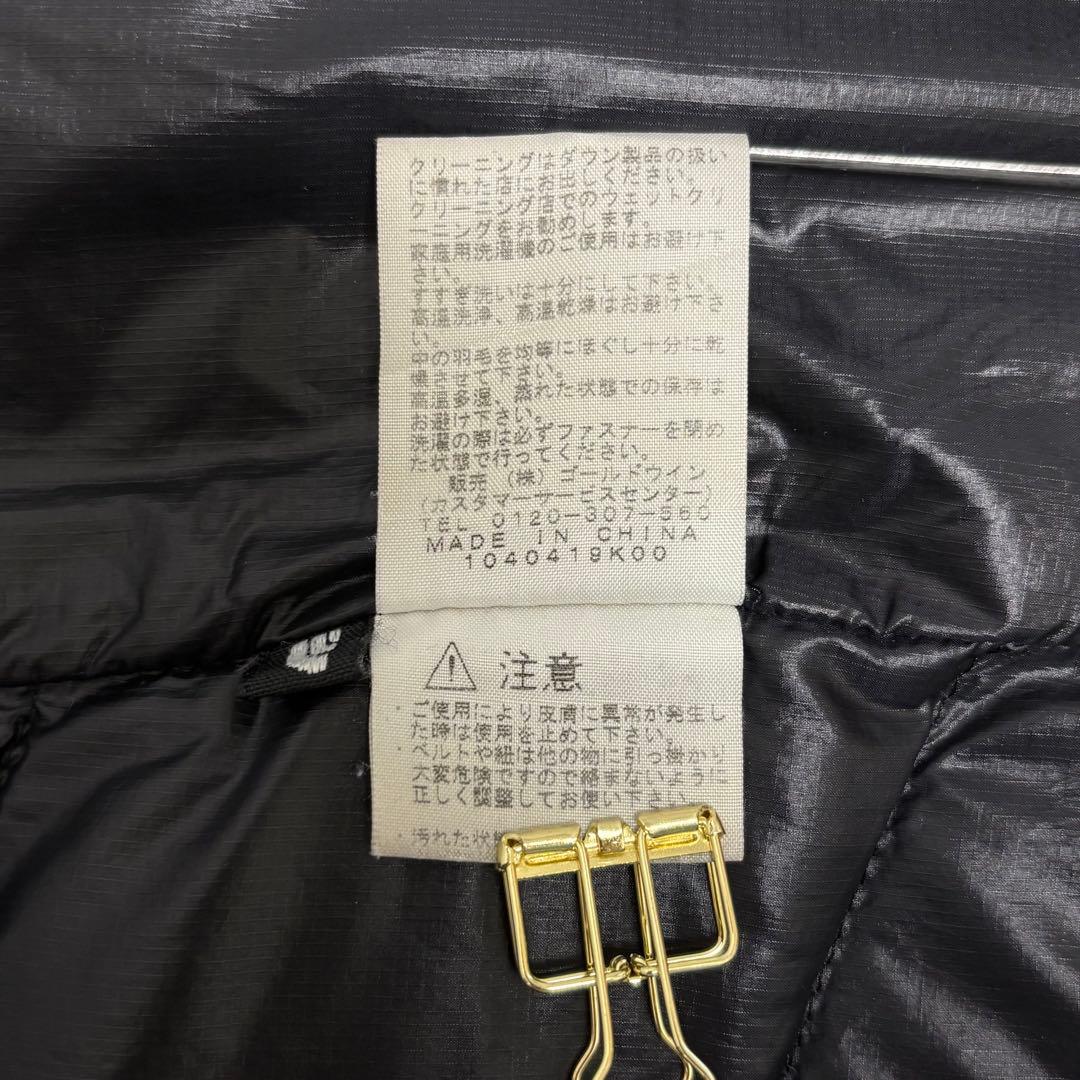 クリーニングはダウン製品の扱い
に慣れた店にお出しください。
クリーニング店でのウェットクリ
ーニングをお勧めします。
家庭用洗濯機のご使用はお避け下
さい。
すすぎ洗いは十分にして下さい。
高温洗浄、高温乾燥はお避け下さ
い。
中の羽毛を均等にほぐし十分に乾
燥させて下さい。
高温多湿、蒸れた状態での保存は
お避け下さい。
洗濯の際は必ずファスナーを閉め
た状態で行ってください。
販売 (株)ゴールドウイン
(カスタマーサービスセンター)
TEL 0120-307-560
MADE IN CHINA
1040419K00
注意
・ご使用により皮膚に異常が発生し
た時は使用を止めて下さい。
・ベルトや紐は他の物に引っ掛かり
大変危険ですので絡まないように
正しく調整してお使い下さい。
・汚れた状